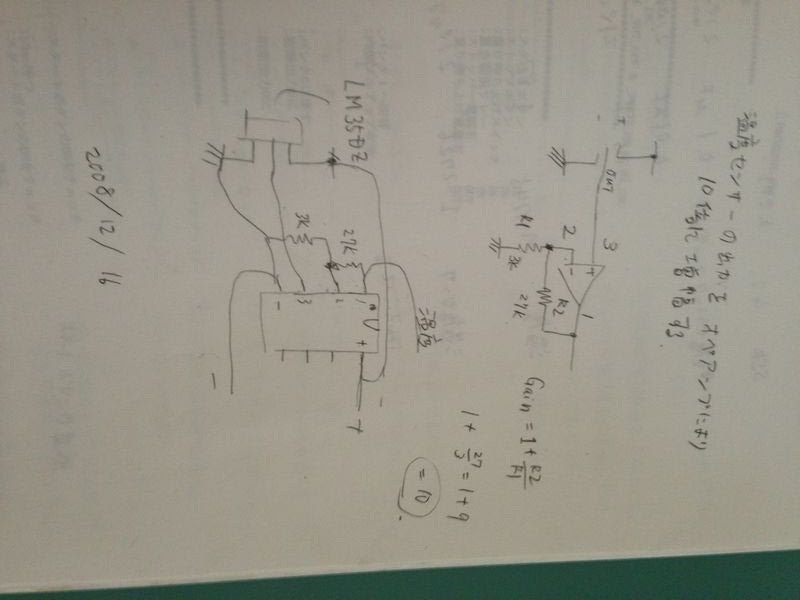 温度センサーの出力をオペアンプにより
10倍に増幅する
+
-
OUT
3
2
+
-
1
R1
3K
R2
27K
Gain = 1 + R2/R1
1 + 27/3 = 1 + 9
= 10
LM35DZ
3K
27K
1
2
3
-
+
温度
-
+
2008/12/16